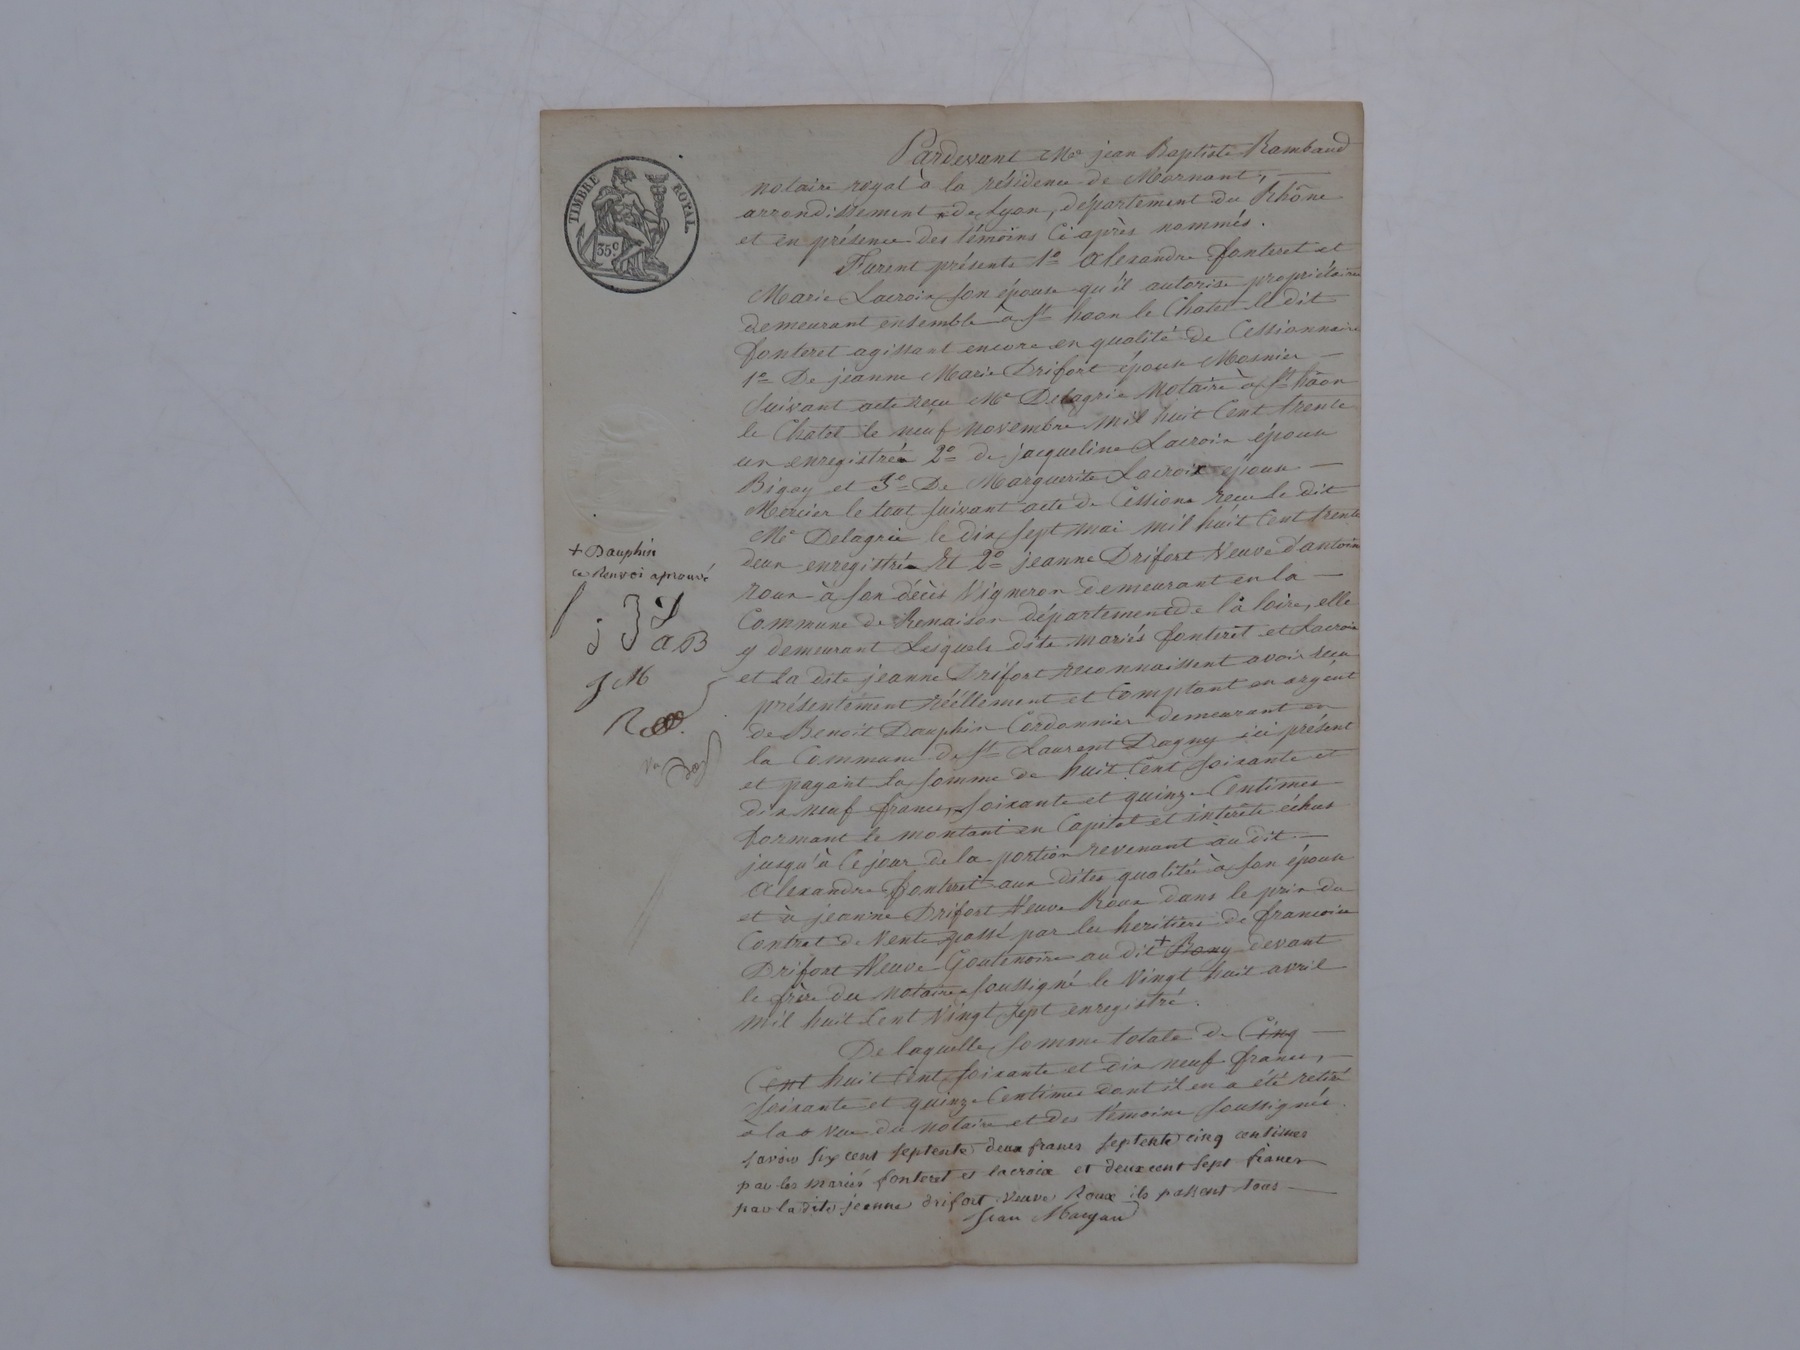 TIMBRE ROYAL
35 c
Pardevant Me jean Baptiste Rambaud
notaire royal à la résidence de Mornant, —
arrondissement de Lyon, département du Rhône
et en présence des témoins ci après nommés.
Furent présents 1o Alexandre fonteret et
Marie Lacroix son épouse qu'il autorise propriétaires
demeurant ensemble à St haon le Chatel le dit
fonteret agissant encore en qualité de Cessionnaire
1o De jeanne Marie Drifort épouse Mosnier —
suivant acte reçu Me Delagrie Notaire à St hâon
le Chatel le neuf novembre mil huit Cent trente
un enregistré 2o de jacqueline Lacroix épouse
Bigay et 3o De Marguerite Lacroix épouse —
Mercier le tout suivant acte de Cession reçu le dit
Me Delagrie le dix sept mai mil huit Cent trente
deux enregistré Et 2o jeanne Drifort Veuve d'antoine
roux à son décès Vigneron demeurant en la —
Commune de Renaison département de la loire, elle
y demeurant Lesquels dits mariés fonteret et Lacroix
et la dite jeanne Drifort reconnaissent avoir reçu
présentement réellement et comptant en argent
de Benoit Dauphin Cordonnier demeurant en
la Commune de St Laurent Dagny ici présent
et payant la somme de huit Cent soixante et
dix neuf francs, soixante et quinze Centimes
formant le montant en Capital et intérêts échus
jusqu'à ce jour de la portion revenant au dit —
Alexandre fonteret aux dites qualités à son épouse
et à jeanne Drifort Veuve Roux dans le prix du
Contrat de Vente passé par les héritiers de françoise
Drifort Veuve Goutenoire au dit + Bony devant
le frère du Notaire soussigné le Vingt huit avril
mil huit Cent Vingt sept enregistré.
De laquelle somme totale de Cinq —
Cent huit Cent soixante et dix neuf francs, —
soixante et quinze Centimes dont il en a été retiré
à la vue du notaire et des témoins soussignés.
savoir six cent septente deux francs septente cinq centimes
par les mariés fonteret et lacroix et deux cent sept francs
par la dite jeanne drifort veuve Roux ils passent tous —
Jean Margand
+ Dauphin
ce Renvoi aprouvé
j J
a B
J M
R